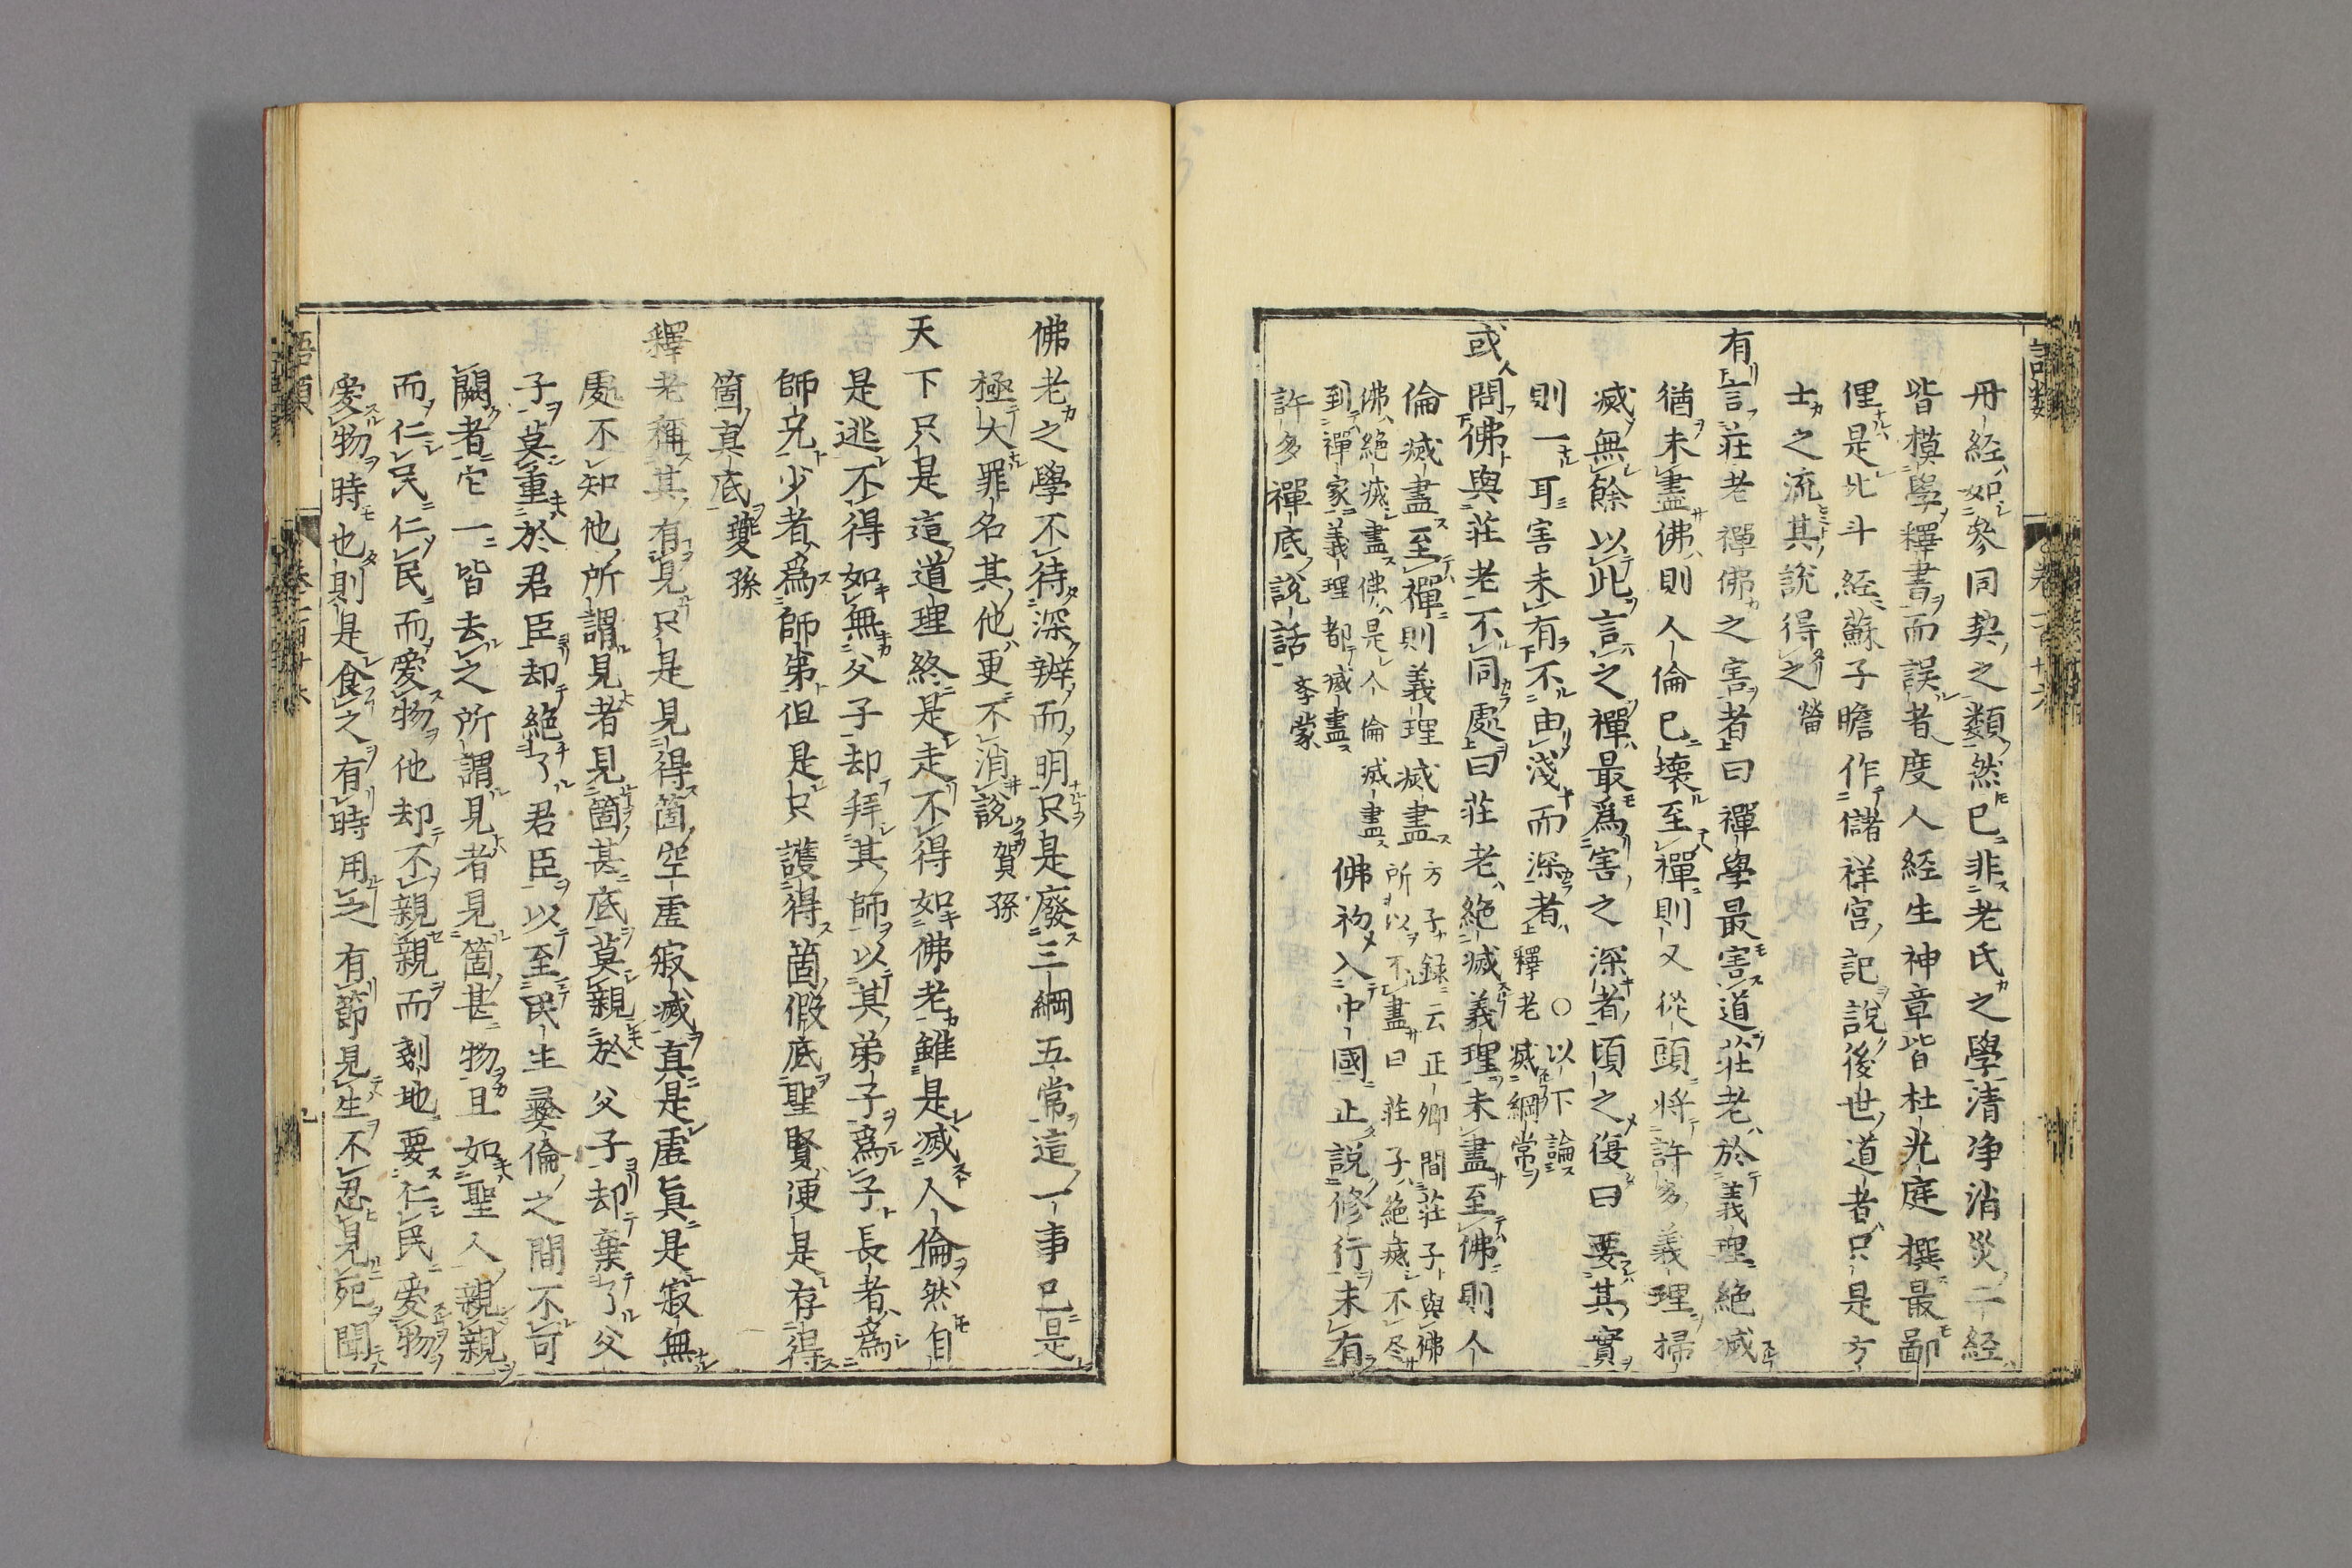 丹經如參同契之類然已非老氏之學清净消災二經
皆模學釋書而誤者度人經生神章皆杜光庭撰最鄙
俚是北斗經蘇子瞻作儲祥宮記說後世道者只是方
士之流其說得之 㽦
有言莊老禪佛之害者曰禪學最害道莊老於義理絶滅
猶未盡佛則人倫已壞至禪則又從頭將許多義理掃
滅無餘以此言之禪最爲害之深者頃之復曰要其實
則一耳害未有不由淺而深者 ○以下論
釋老滅綱常
或問佛與莊老不同處曰莊老絶滅義理未盡至佛則人
倫滅盡至禪則義理滅盡 方子録云正卿問莊子與佛
所以不盡曰莊子絶滅不尽
佛絶滅盡佛是人倫滅盡
到禪家義理都滅盡
佛初入中國止說修行未有
許多禪底說話 李蒙
語類
卷一百
佛老之學不待深辨而明只是廢三綱五常這一事已是
極大罪名其他更不消說 賀孫
天下只是這道理終是走不得如佛老雖是滅人倫然自
是逃不得如無父子却拜其師以其弟子爲子長者爲
師兄少者爲師弟但是只護得箇假底聖賢便是存得
箇真底 夔孫
釋老稱其有見只是見得箇空虛寂滅真是虛真是寂無
處不知他所謂見者見箇甚底莫親於父子却棄了父
子莫重於君臣却絶了君臣以至民生彝倫之間不可
闕者它一皆去之所謂見者見箇甚物且如聖人親親
而仁民仁民而愛物他却不親親而剗地要仁民愛物
愛物時也則是食之有時用之有節見生不忍見死聞
語類
卷一百